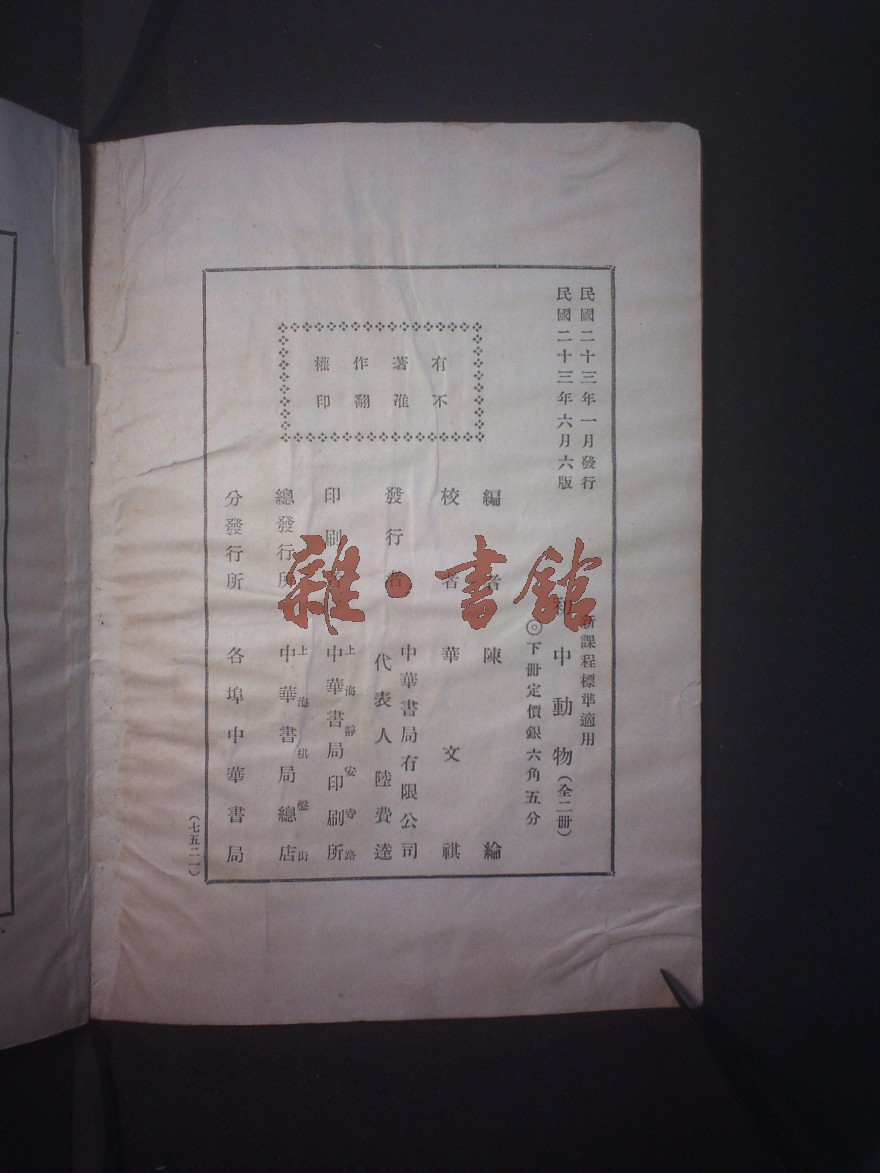 民國二十三年一月發行
民國二十三年六月六版
有著作權
不准翻印
新課程標準適用
初中動物（全二冊）
◎下冊定價銀六角五分
編者 陳綸
校者 華文祺
發行者 中華書局有限公司
代表人 陸費逵
印刷者 上海靜安寺路
中華書局印刷所
總發行所 上海棋盤街
中華書局總店
分發行所 各埠中華書局
（七五二一）
雜·書館